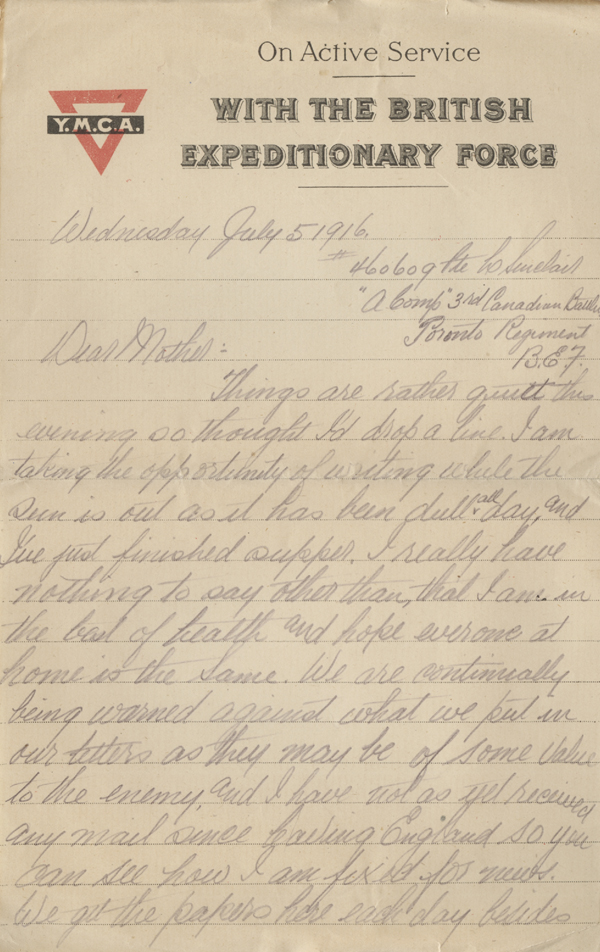 On Active Service
WITH THE BRITISH
EXPEDITIONARY FORCE
Y.M.C.A.
Wednesday July 5 1916.
# 460609 Pte Sinclair
"A Comp" 3rd Canadian Battln
Toronto Regiment
B.E.F.
Dear Mother:-
Things are rather quiet this
evening so thought I'd drop a line. I am
taking the opportunity of writing while the
sun is out as it has been dull all day, and
I've just finished supper. I really have
nothing to say other than, that I am in
the best of health and hope everone at
home is the same. We are continually
being warned against what we put in
our letters as they may be of some value
to the enemy, and I have not as yet received
any mail since leaving England so you
can see how I am fixed for news.
We get the papers here each day besides